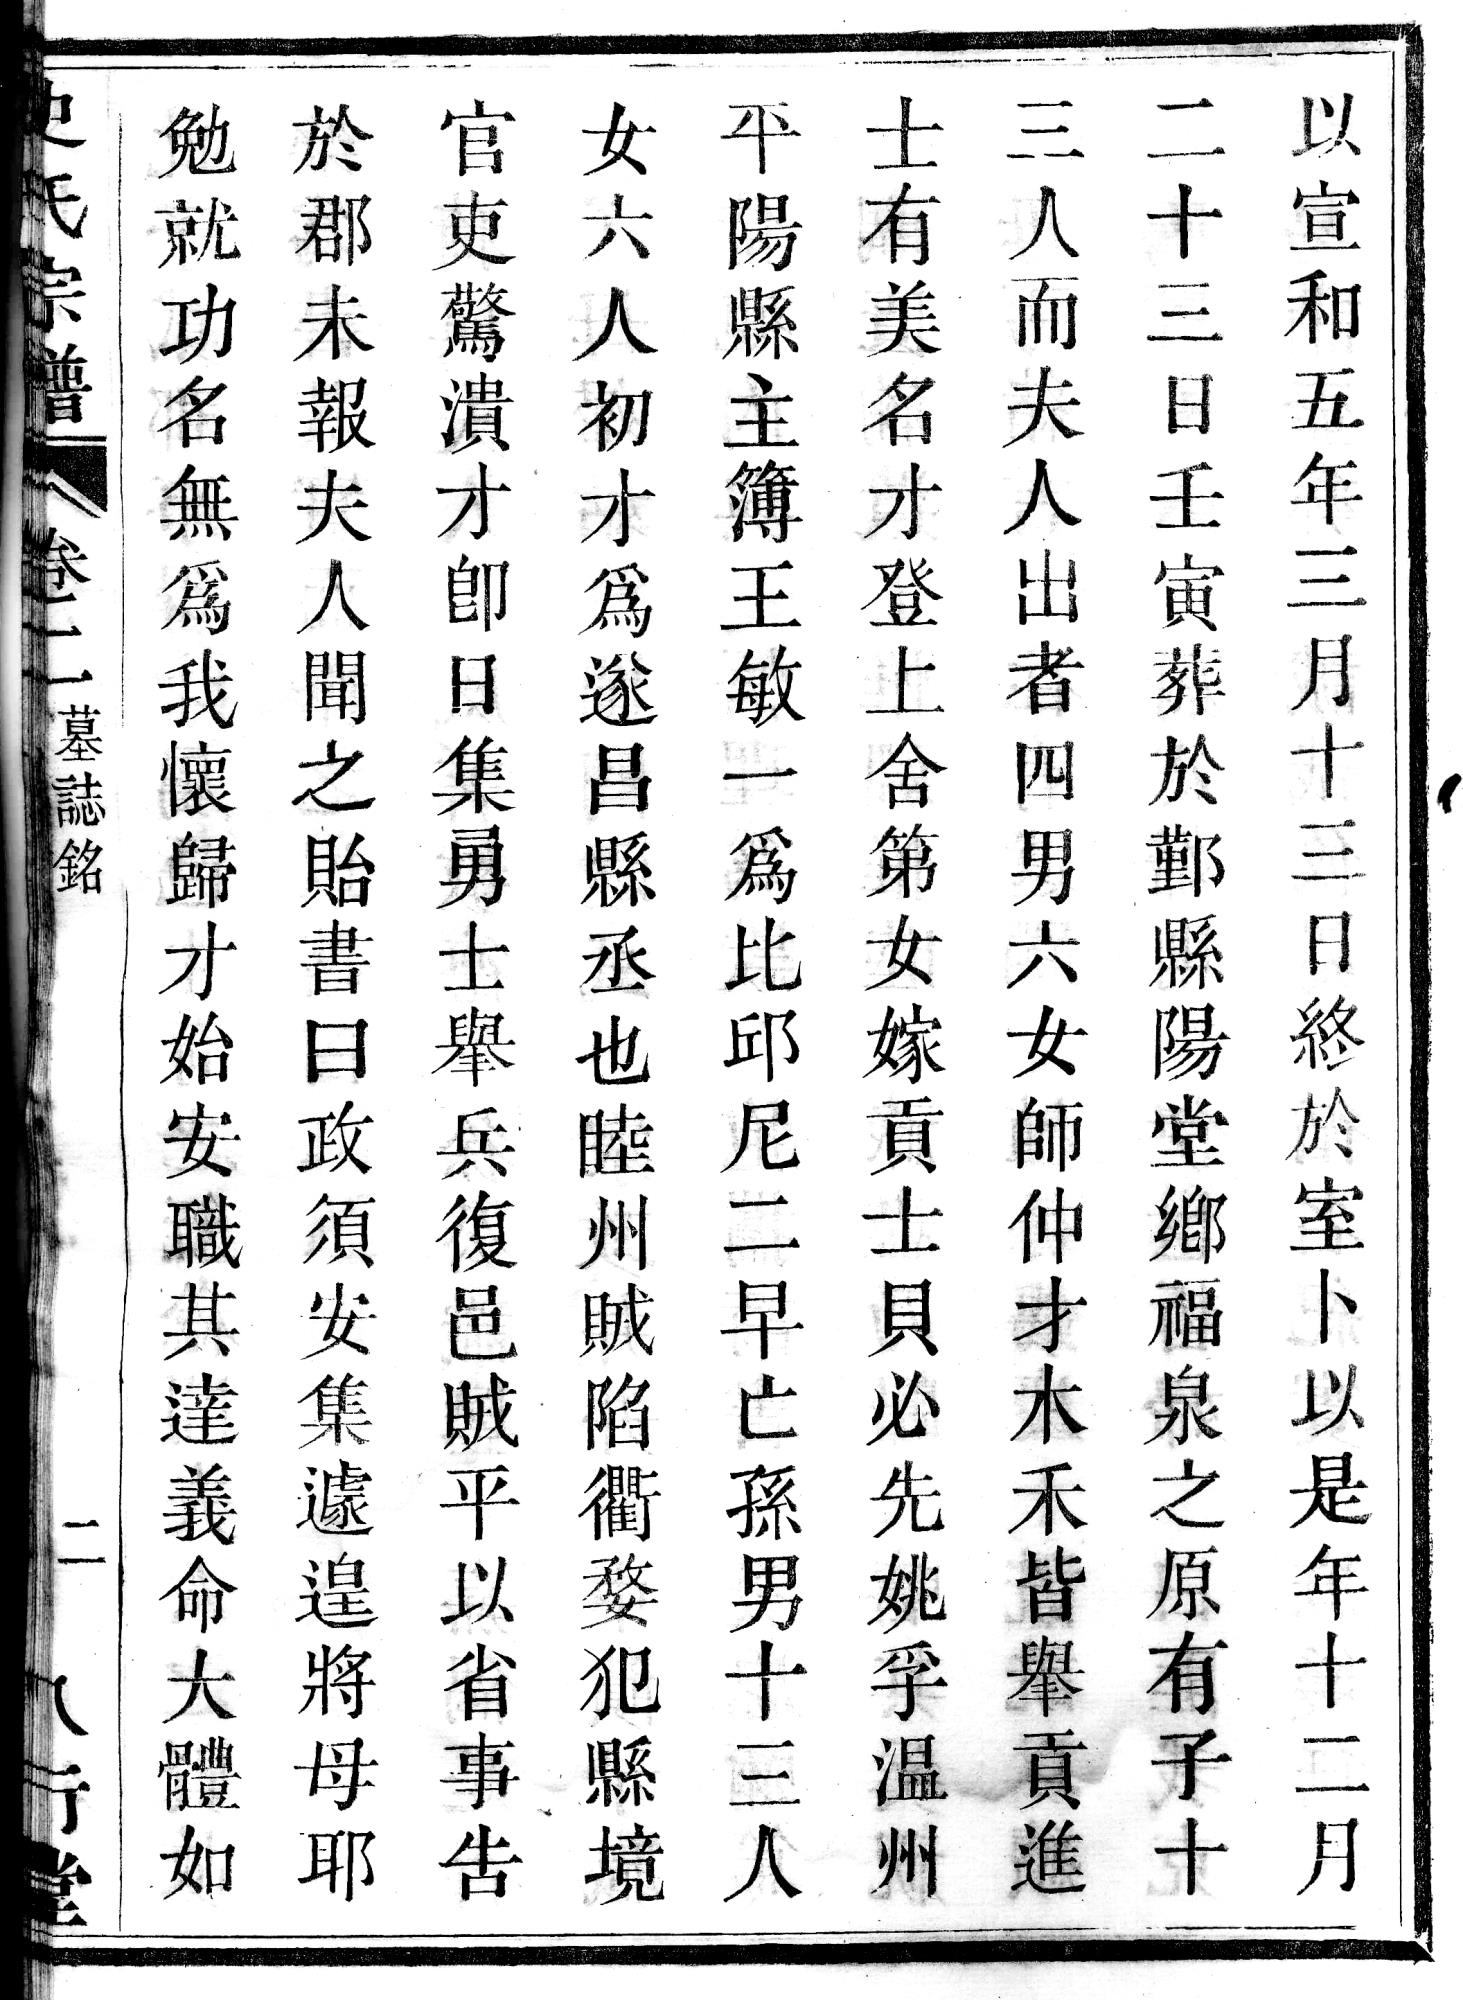 以宣和五年三月十三日終於室卜以是年十二月
二十三日壬寅葬於鄞縣陽堂鄉福泉之原有子十
三人而夫人出者四男六女師仲才木禾皆舉貢進
士有美名才登上舍第女嫁貢士貝必先姚孚溫州
平陽縣主簿王敏一為比邱尼二早亡孫男十三人
女六人初才為遂昌縣丞也睦州賊陷衢婺犯縣境
官吏驚潰才卽日集勇士舉兵復邑賊平以省事告
於郡未報夫人聞之貽書曰政須安集遽遑將母耶
勉就功名無為我懷歸才始安職其達義命大體如
史氏宗譜 卷二 墓誌銘 二 八行堂